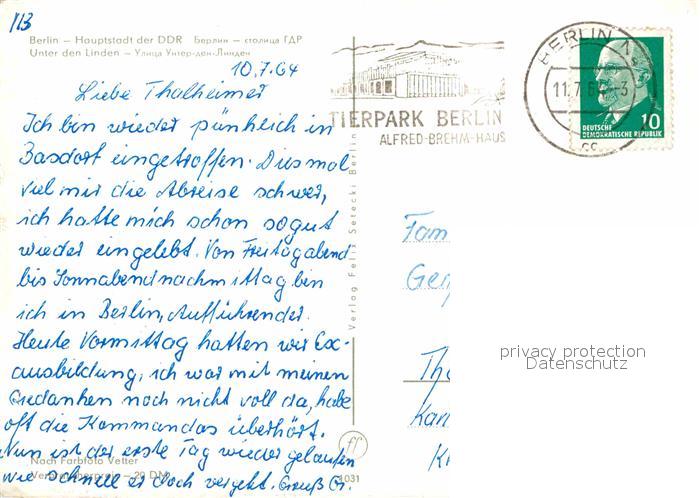 113
Berlin – Hauptstadt der DDR Берлин – столица ГДР
Unter den Linden – Улица Унтер-ден-Линден
10.7.64
Liebe Thalheimer
Ich bin wieder pünklich in
Basdorf eingetroffen. Diesmal
viel mir die Abreise schwer,
ich hatte mich schon sogut
wieder eingelebt. Von Freitagabend
bis Sonnabendnachmittag bin
ich in Berlin, Aufführender.
Heute Vormittag hatten wir Ex-
ausbildung, ich war mit meinen
Gedanken noch nicht voll da, habe
oft die Kommandos überhört.
Nun ist der erste Tag wieder gelaufen
wie schnell es doch vergeht. Gruß G.
Nach Farbfoto Vetter
Verbraucherpreis – 20 DM
1031
Verlag Felix Setecki Berlin
TIERPARK BERLIN
ALFRED-BREHM-HAUS
BERLIN
11.7.6
10
DEUTSCHE
DEMOKRATISCHE REPUBLIK
Fam
Th
Kan
privacy protection
Datenschutz